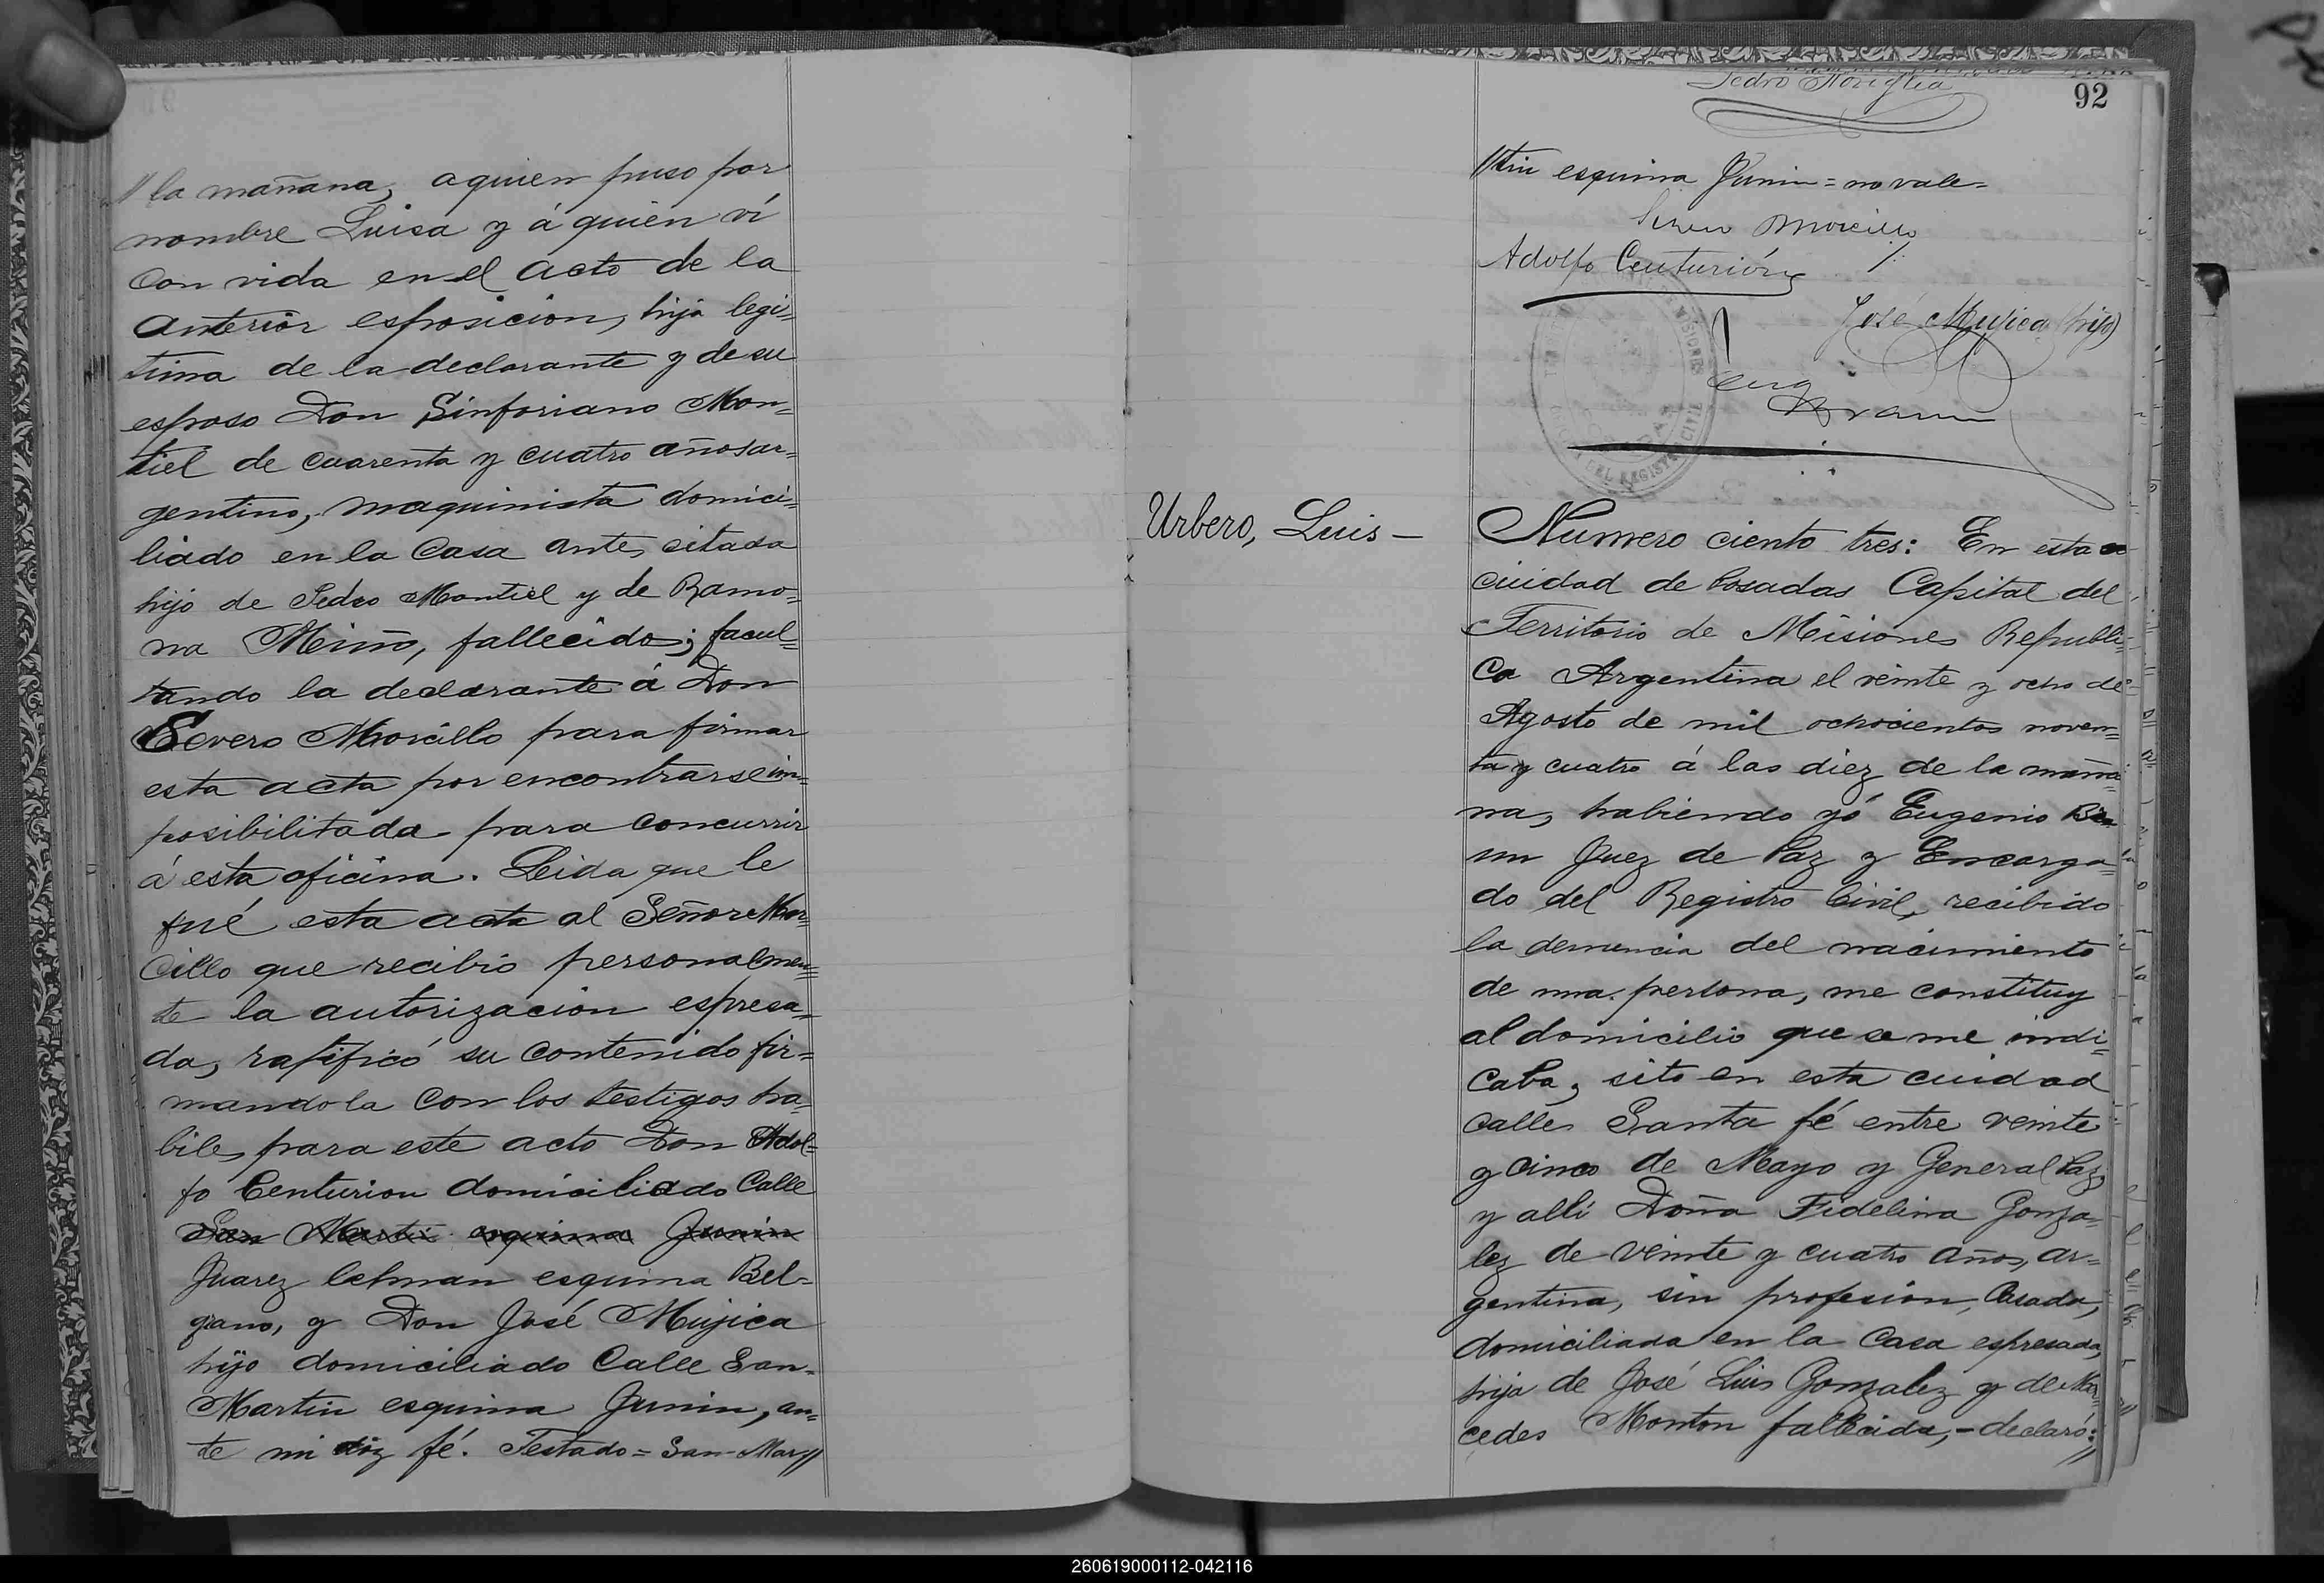 // la mañana, a quien puso por
nombre Luisa y á quien ví
con vida en el acto de la
anterior esposicion, hija legi=
tima de la declarante y de su
esposo Don Sinforiano Mon=
tiel de cuarenta y cuatro años ar=
gentino, maquinista domici=
liado en la Casa ante citada
hijo de Pedro Montiel y de Ramo=
na Miño, fallecido; facul=
tando la declarante á Don
Severo Morcillo para firmar
esta acta por encontrarse im=
posibilitada para concurrir
á esta oficina. Leida que le
fué esta acta al Señor Mor=
cillo que recibió personalmen=
te la autorizacion espresa=
da, ratificó su contenido fir=
mandola con los testigos ha=
biles para este acto Don Adol=
fo Centurion domiciliado Calle
San Martin esquina Junin
Juarez Celman esquina Bel=
grano, y Don José Mujica
hijo domiciliado Calle San=
Martin esquina Junin, an=
te mi doy fé. Testado = San-Mar//
92
Pedro Noriglia
//tin esquina Junin = no vale =
Severo Morcillo
Adolfo Centurión
José Mujica (hijo)
Eug
Braun
DEL REGISTRO CIVIL
Urbero, Luis -
Numero ciento tres: En esta
ciuidad de Posadas Capital del
Territorio de Misiones Republi=
ca Argentina el veinte y ocho de
Agosto de mil ochocientos noven=
ta y cuatro á las diez de la maña=
na, habiendo yó Eugenio
un Juez de Paz y Encarga=
do del Registro Civil, recibido
la denuncia del nacimiento
de una persona, me constituy
al domicilio que se me indi=
caba, sito en esta cuidad
calle Santa fé entre veinte
y cinco de Mayo y General Paz,
y alli Doña Fidelina Gonza=
lez de veinte y cuatro años, ar=
gentina, sin profesion, Casada,
domiciliada en la Casa espresada,
hija de José Luis Gonzalez y de Mer=
cedes Monton fallecida, - declaró: //
260619000112-042116